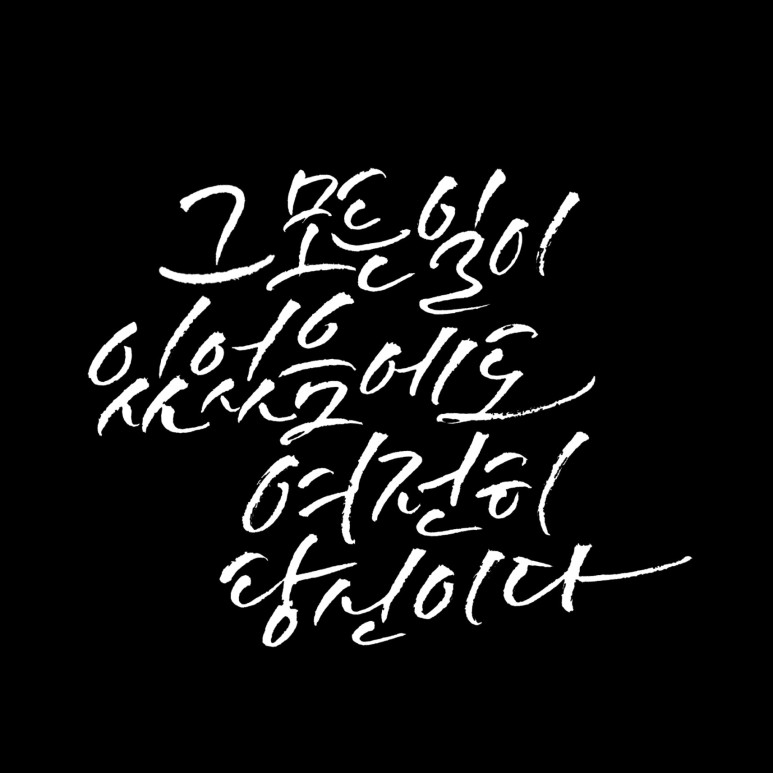 그 모든 일이
있었음에도
여전히
당신이다